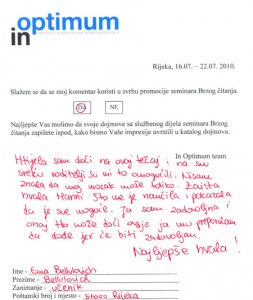 optimum
in
Rijeka, 16.07. – 22.07. 2010.
Slažem se da se moj komentar koristi u svrhu promocije seminara Brzog čitanja.
DA NE
Najljepše Vas molimo da svoje dojmove sa službenog dijela seminara Brzog
čitanja zapišete ispod, kako bismo Vaše impresije uvrstili u katalog dojmova.
In Optimum team
Htjela sam doći na ovaj tečaj i na svu
sreću roditelji su mi to omogućili. Nisam
znala da moj mozak može toliko. Zaista
hvala Marini što me je naučila i pokazala
da je sve moguće. Ja sam zadovoljna i
onaj tko može doći ovdje ja mu preporučam
da dođe jer će biti zadovoljan.
Najljepše hvala!
Ime - Ema
Prezime -
Zanimanje - učenik
Poštanski broj i mjesto - 51000 Rijeka